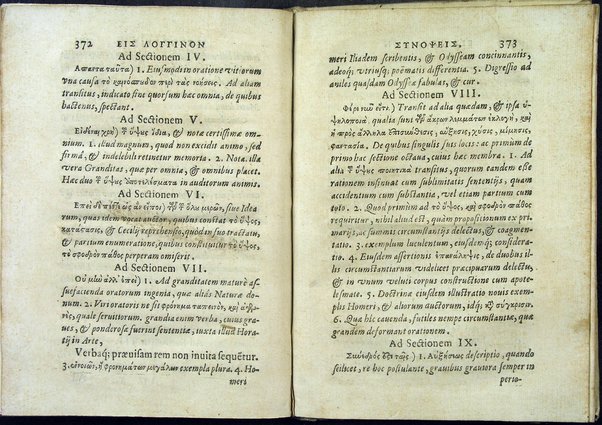 372 ΕΙΣ ΛΟΓΓΙΝΟΝ
Ad Sectionem IV.
Απαντα ταῦτα) 1. Eiusmodi in oratione vitiorum
vna causa τὸ καινόσπουδον περὶ τὰς νοήσεις. Ad aliam
transitus, indicato sine quorsum hæc omnia, de quibus
hactenus, spectant.
Ad Sectionem V.
ὕψους ἰδέα, & nota certissima om-
nium. 1. illud magnum, quod non excidit animo, sed
firmâ, & indelebili retinetur memoria. 2. Nota. illa
vera Granditas, quæ per omnia, & omnibus placet.
Hæc duo ὕψους ἀποτελέσματα in auditorum animis.
Ad Sectionem VI.
Ἐπεὶ δὲ πέντε ὡς ἂν εἴποι) ὕψους ὅλου μωρίων, siue Idea
rum, quas idem vocat auctor, quibus constat τὸ ὕψος,
κατάστασις, & Cecilij reprehensio, quòd in suo tractatu,
& partium enumeratione, quibus constituitur τὸ ὕψος,
τὸ σφοδρὸν πάθος perperam omiserit.
Ad Sectionem VII.
Οὐ μὴν ἀλλ' ἐπεὶ) 1. Ad granditatem maturè as-
suefacienda oratorum ingenia, quæ aliàs Naturæ do-
num. 2. Viri oratoris ne sit φρόνημα ταπεινὸν, καὶ
quale seruitorum. grandia enim verba, cuius graues
& ponderosa fuerint sententiæ, iuxta illud Hora-
tij in Arte,
Verbaq; præuisam rem non inuita sequẽtur.
3. ἐννοιῶν, ἢ φρονημάτων μεγάλων exempla plura. 4. Ho-
meri
ΣΥΝΟΨΕΙΣ. 373
meri Iliadem scribentis, & Odysseam concinnantis,
adeoq; vtriusq; poëmatis differentia. 5. Digressio ad
aniles quasdam Odysseæ fabulas, & cur.
Ad Sectionem VIII.
Φέρε νῦν εἴτι) Transit ad alia quædam, & ipsa ὑ-
ψηλοποιὰ. qualia sunt ἡ ἄκρων λημμάτων ἐκλογὴ, καὶ
ἡ πρὸς ἄλληλα ἐπισύνθεσις, αὔξησις, χύσις, μίμησις,
φαντασία. De quibus singulis suis locis: ac primum de
primo hæc sectione octaua, cuius hæc membra. 1. Ad
alia ὕψους ποιητικὰ transitus, quorum eandem esse
rationem insinuat cum sublimitatis sententijs, quam
accidentium cum substantia, vel etiam partium cum
toto. 2. Quod primum ad τὸ ὕψος, καὶ σφοδρὸν πάθος
requiritur, nihil aliud est, quàm propositionum ex pri-
marijs, ac summis circumstantijs delectus, & coagmen-
tatio. 3. exemplum luculentum, eiusdemq; considera-
tio. 4. Eiusdem assertionis ἐπανάληψις, de duobus il-
lis circumstantiarum videlicet præcipuarum delectu,
& in vnum velut corpus constructione cum apote-
lesmate. 5. Doctrina eiusdem illustratio nouis exem-
plis Homeri, & aliorum auctorum, idq; καὶ σύγκρισιν.
6. Quæ hîc cauenda, futiles nempe circumstantiæ, quæ
grandem deformant orationem.
Ad Sectionem IX.
Σύνεδρός ἐστι ταῖς) 1. Αὐξήσεως descriptio, quando
scilicet, re hoc postulante, grauibus grauiora semper in
perio-